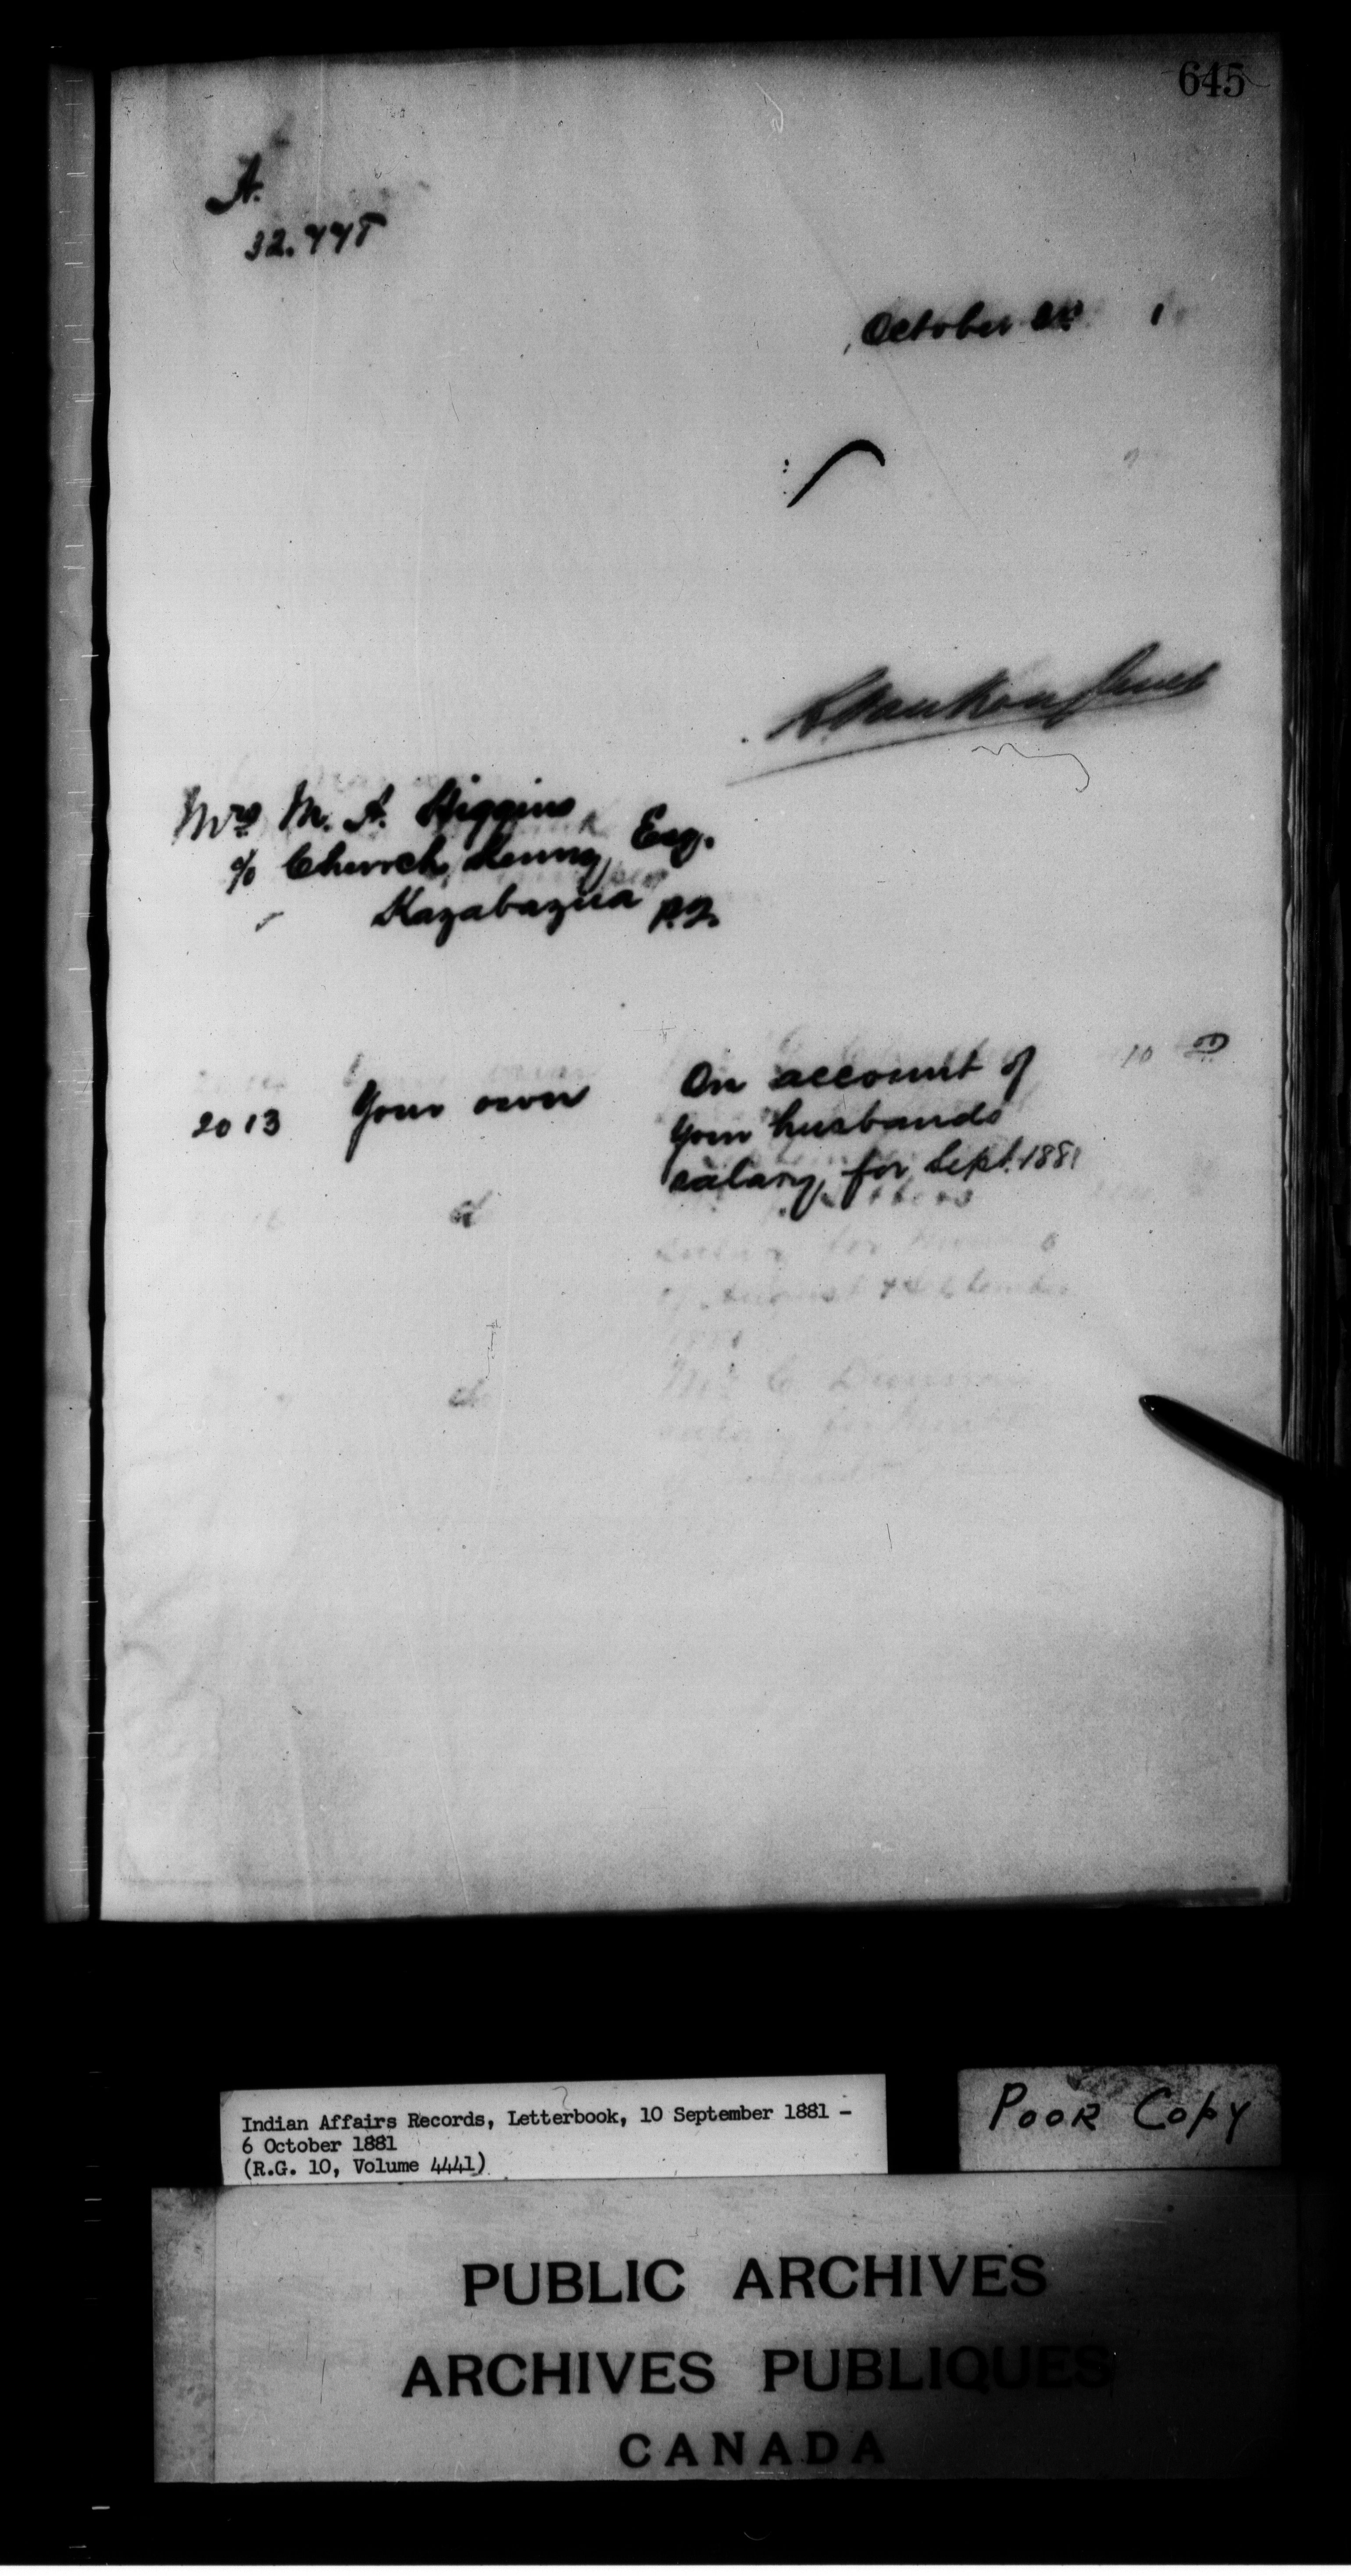 645
A.
32.778
October 1
Mrs M. A. Higgins
c/o Church, Esq.
Kazabazua P.Q.
10 00
On account of
2013 Your own
your husbands
salary for Sept. 1881
Poor Copy
Indian Affairs Records, Letterbook, 10 September 1881 -
6 October 1881
(R.G. 10, Volume 4441)
PUBLIC ARCHIVES
ARCHIVES PUBLIQUES
CANADA